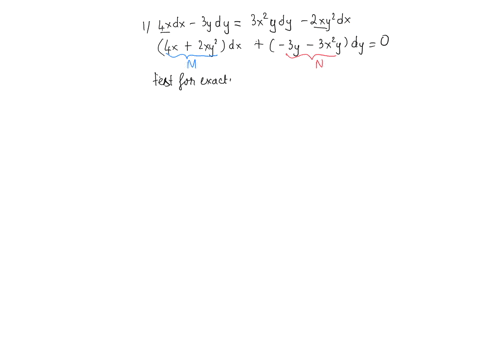 1) 4xdx - 3ydy = 3x²ydy - 2xy²dx
(4x + 2xy²)dx + (-3y - 3x²y)dy = 0
M N
test for exact.